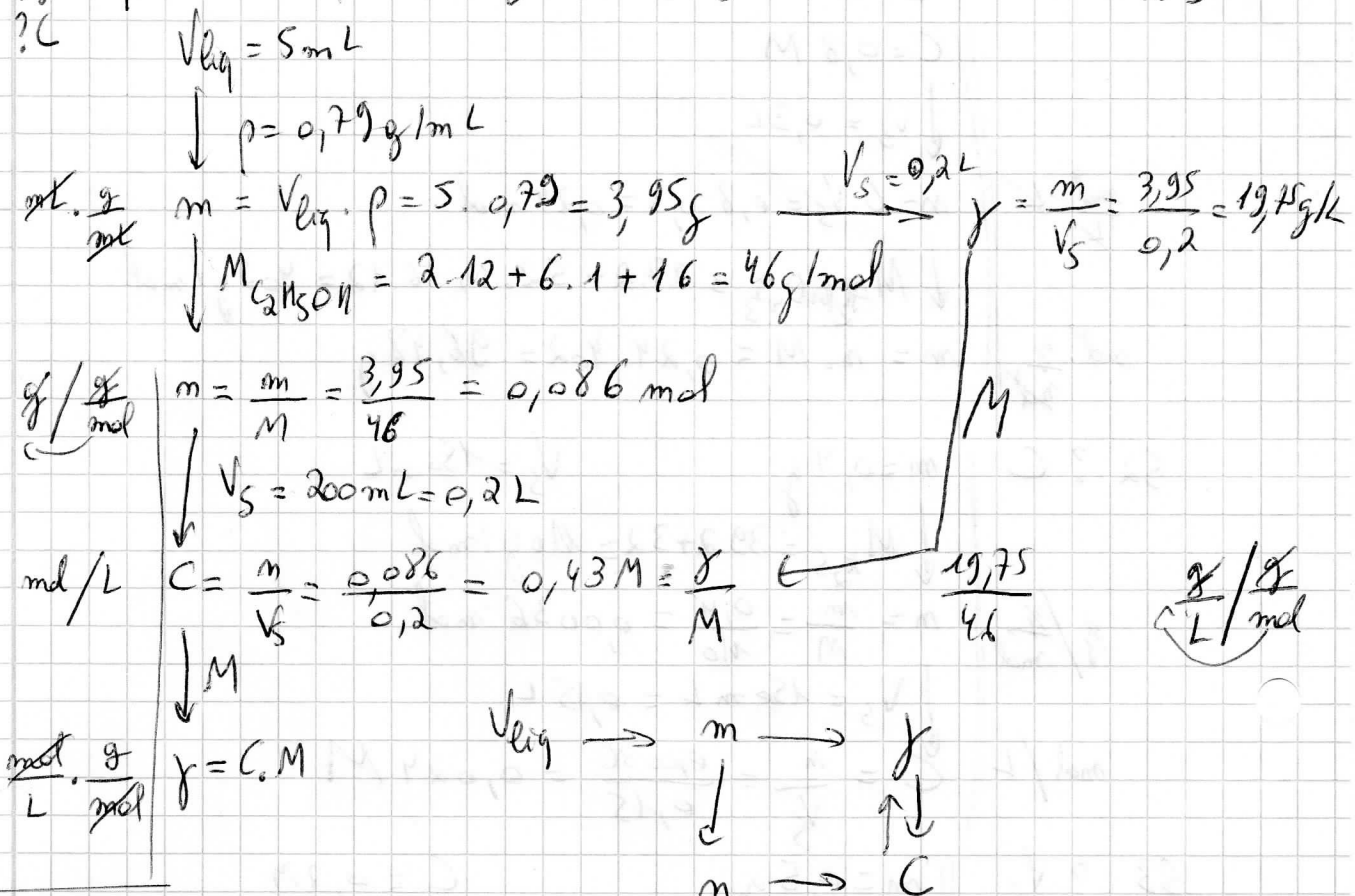 ?C
Vliq = 5 mL
↓ ρ = 0,79 g/mL
mL · g/mL m = Vliq · ρ = 5 · 0,79 = 3,95 g → Vs = 0,2 L γ = m/Vs = 3,95/0,2 = 19,75 g/L
↓ M C2H5OH = 2.12 + 6.1 + 16 = 46 g/mol
g / g/mol n = m/M = 3,95/46 = 0,086 mol
M
↓ Vs = 200 mL = 0,2 L
mol/L C = n/Vs = 0,086/0,2 = 0,43 M = γ/M ← 19,75/46 g/L / g/mol
↓ M
mol/L · g/mol γ = C.M
Vliq → m → γ
↓ ↑↓
n → C